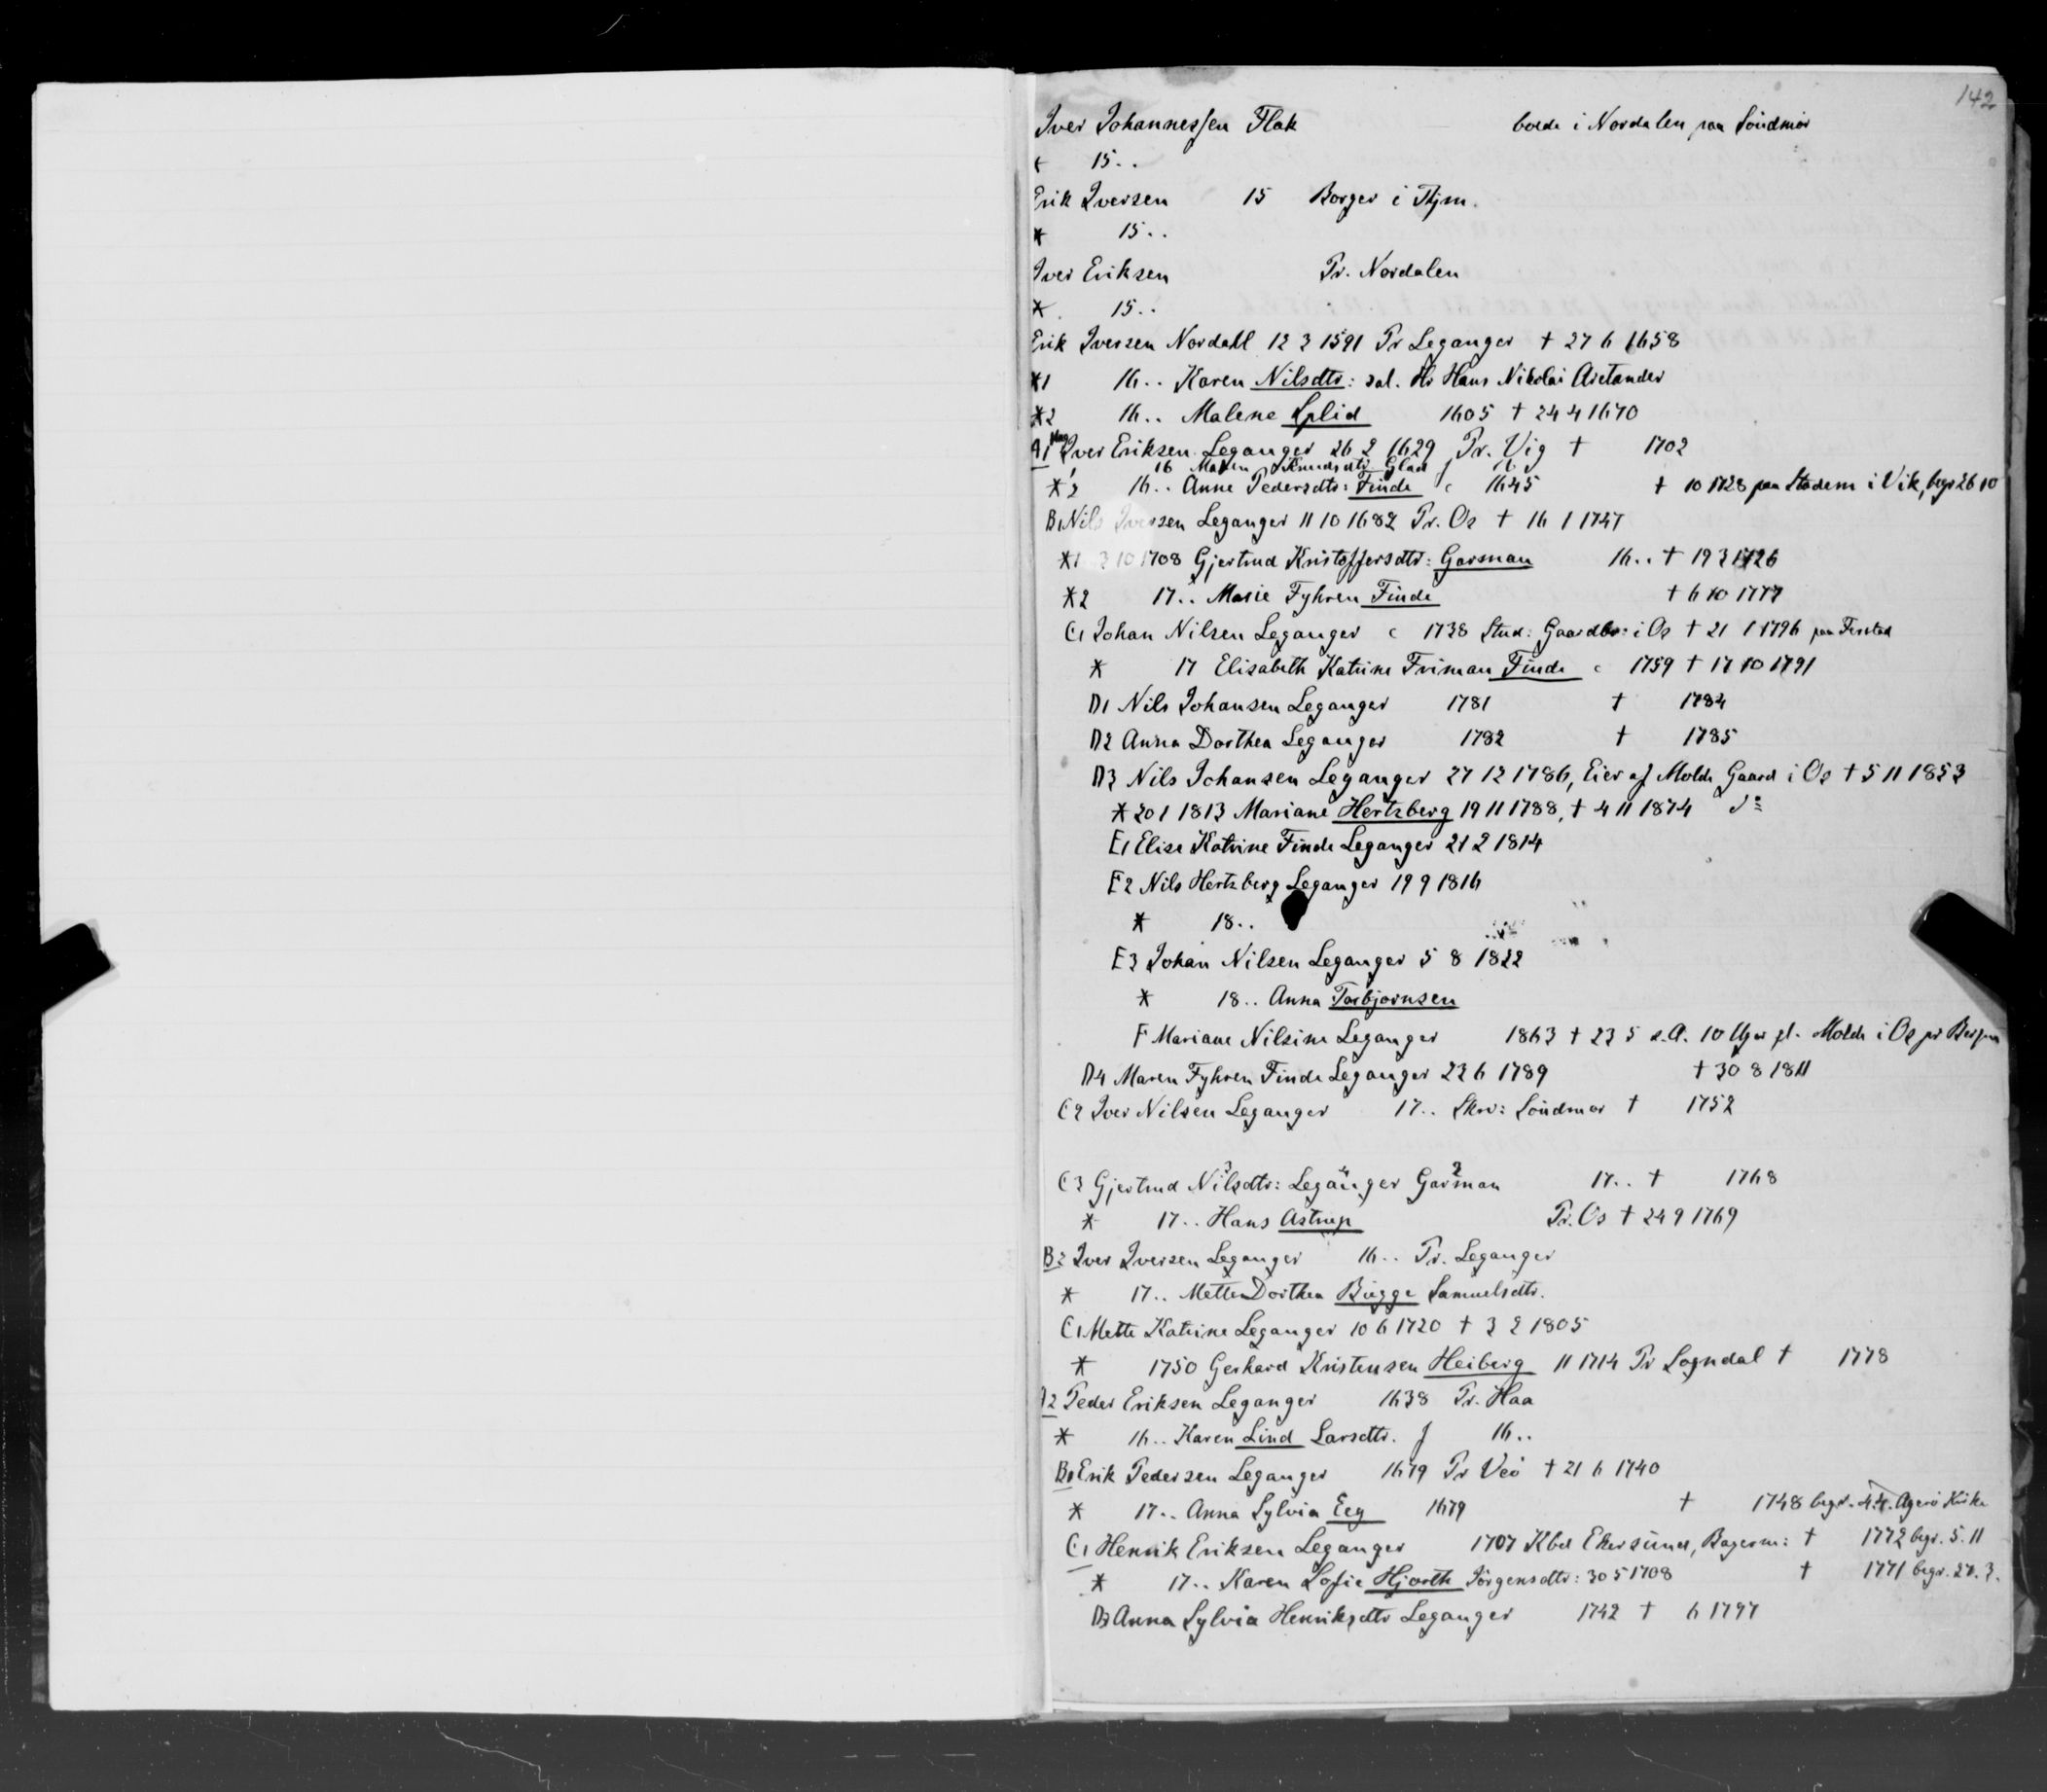 142
Iver Johannesſen Flak boede i Nordalen paa Söndmör
* 15..
Erik Iversen 15 Borger i Thjm.
* 15..
Iver Eriksen Pr. Nordalen
* 15..
Erik Iversen Nordahl 12 3 1591 Pr Leganger † 27 6 1658
*1 16.. Karen Nilsdtr: sal. Hr Hans Nikolai Arctander
*2 16.. Malene Splid 1605 † 24 4 1670
A1 Iver Eriksen Leganger 26 2 1629 Pr. Vig † 1702
1 16 Maren Knudsdtr. Glad f 16
*2 16.. Anne Pedersdtr: Finde c 1645 † 10 1728 paa Stadem i Vik, begr 26 10
B1 Nils Iversen Leganger 11 10 1682 Pr. Os † 16 1 1747
*1 3 10 1708 Gjertrud Kristoffersdtr: Garman 16.. † 19 3 1726
*2 17.. Marie Fyhren Finde † 6 10 1777
C1 Johan Nilsen Leganger c 1738 Stud: Gaardbr: i Os † 21 1 1796 paa
* 17 Elisabeth Katrine Friman Finde c 1759 † 17 10 1791
D1 Nils Johansen Leganger 1781 † 1784
D2 Anna Dorthea Leganger 1782 † 1785
D3 Nils Johansen Leganger 27 12 1786, Eier af Molde Gaard i Os † 5 11 1853
* 20 1 1813 Mariane Hertzberg 19 11 1788, † 4 11 1874
E1 Elise Katrine Finde Leganger 21 2 1814
E2 Nils Hertzberg Leganger 19 9 1816
* 18..
E3 Johan Nilsen Leganger 5 8 1822
* 18.. Anna Torbjornsen
F Mariane Nilsine Leganger 1863 † 23 5 s.A. 10 Uger gl. Molde i Os pr Bergen
D4 Maren Fyhren Finde Leganger 23 6 1789 † 30 8 1811
C2 Iver Nilsen Leganger 17.. Skrv: Söndmör † 1752
C3 Gjertrud Nilsdtr: Leganger Garman 17.. † 1768
* 17.. Hans Astrup Pr. Os † 24 9 1769
B2 Iver Iversen Leganger 16.. Pr. Leganger
* 17.. Mette Dorthea Bugge Samuelsdtr.
C1 Mette Katrine Leganger 10 6 1720 † 3 2 1805
* 1750 Gerhard Kristensen Heiberg 11 1714 Pr Sogndal † 1778
A2 Peder Eriksen Leganger 1638 Pr. Haa
* 16.. Karen Lind Larsdtr. f 16..
B1 Erik Pedersen Leganger 1679 Pr Veö † 21 6 1740
* 17.. Anna Sylvia Eeg 1679 † 1748 begr. 4.4. Agerö Kirke
C1 Henrik Eriksen Leganger 1707 Kbd Ekersund, Bagerm: † 1772 begr. 5. 11
* 17.. Karen Sofie Hjorth Jörgensdtr: 30 5 1708 † 1771 begr. 27. 3.
D3 Anna Sylvia Henriksdtr Leganger 1742 † 6 1797